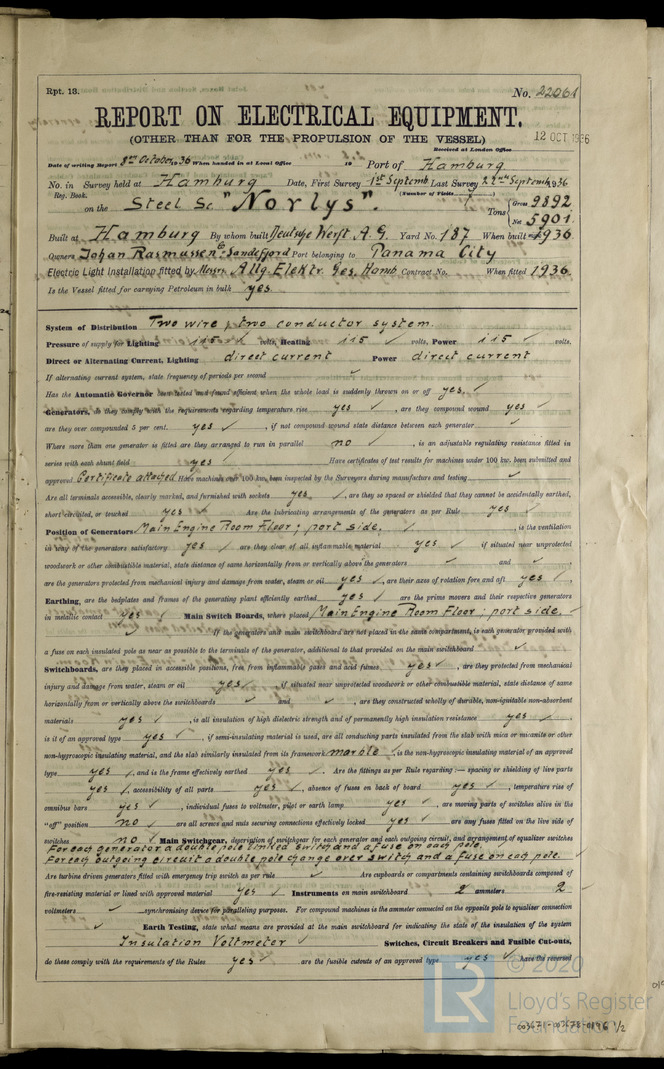 Rpt. 13.
No. 22061
REPORT ON ELECTRICAL EQUIPMENT.
(OTHER THAN FOR THE PROPULSION OF THE VESSEL)
Received at London Office 12 OCT 1936
Date of writing Report 8th October 1936 When handed in at Local Office 19 Port of Hamburg
No. in Survey held at Hamburg Date, First Survey 1st Septemb Last Survey 21st Septemb 1936
Reg. Book. (Number of Visits )
on the Steel Sc "Norlys". Tons { Gross 9892
Net 5901
Built at Hamburg By whom built Deutsche Werft A.G. Yard No. 187 When built 1936
Owners Johan Rasmussen & Co Sandefjord Port belonging to Panama City
Electric Light Installation fitted by Messrs Allg. Elektr. Ges. Hamb Contract No. When fitted 1936
Is the Vessel fitted for carrying Petroleum in bulk yes
System of Distribution Two wire, two conductor system.
Pressure of supply for Lighting 115 ✓ volts, Heating 115 ✓ volts, Power 115 ✓ volts.
Direct or Alternating Current, Lighting direct current Power direct current
If alternating current system, state frequency of periods per second ✓
Has the Automatic Governor been tested and found efficient when the whole load is suddenly thrown on or off yes. ✓
Generators, do they comply with the requirements regarding temperature rise yes ✓, are they compound wound yes ✓
are they over compounded 5 per cent. yes ✓, if not compound wound state distance between each generator ✓
Where more than one generator is fitted are they arranged to run in parallel no ✓, is an adjustable regulating resistance fitted in
series with each shunt field yes Have certificates of test results for machines under 100 kw. been submitted and
approved Certificate attached Have machines over 100 kw. been inspected by the Surveyors during manufacture and testing ✓
Are all terminals accessible, clearly marked, and furnished with sockets yes ✓, are they so spaced or shielded that they cannot be accidentally earthed,
short circuited, or touched yes ✓ Are the lubricating arrangements of the generators as per Rule yes ✓
Position of Generators Main Engine Room Floor; port side. ✓, is the ventilation
in way of the generators satisfactory yes ✓ are they clear of all inflammable material yes ✓ if situated near unprotected
woodwork or other combustible material, state distance of same horizontally from or vertically above the generators ✓ and ✓,
are the generators protected from mechanical injury and damage from water, steam or oil yes ✓, are their axes of rotation fore and aft yes ✓.
Earthing, are the bedplates and frames of the generating plant efficiently earthed yes ✓ are the prime movers and their respective generators
in metallic contact yes ✓ Main Switch Boards, where placed Main Engine Room Floor; port side. ✓
If the generators and main switchboard are not placed in the same compartment, is each generator provided with
a fuse on each insulated pole as near as possible to the terminals of the generator, additional to that provided on the main switchboard ✓
Switchboards, are they placed in accessible positions, free from inflammable gases and acid fumes yes ✓, are they protected from mechanical
injury and damage from water, steam or oil yes ✓ if situated near unprotected woodwork or other combustible material, state distance of same
horizontally from or vertically above the switchboards ✓ and ✓, are they constructed wholly of durable, non-ignitable non-absorbent
materials yes ✓, is all insulation of high dielectric strength and of permanently high insulation resistance yes ✓,
is it of an approved type yes ✓, if semi-insulating material is used, are all conducting parts insulated from the slab with mica or micanite or other
non-hygroscopic insulating material, and the slab similarly insulated from its framework marble ✓, is the non-hygroscopic insulating material of an approved
type yes ✓, and is the frame effectively earthed yes ✓. Are the fittings as per Rule regarding:— spacing or shielding of live parts
yes ✓, accessibility of all parts yes ✓, absence of fuses on back of board yes ✓, temperature rise of
omnibus bars yes ✓, individual fuses to voltmeter, pilot or earth lamp yes ✓, are moving parts of switches alive in the
"off" position no ✓ are all screws and nuts securing connections effectively locked yes ✓ are any fuses fitted on the live side of
switches no ✓ Main Switchgear, description of switchgear for each generator and each outgoing circuit, and arrangement of equalizer switches
For each generator a double pole linked switch and a fuse on each pole.
For each outgoing circuit a double pole change over switch and a fuse on each pole.
Are turbine driven generators fitted with emergency trip switch as per rule ✓ Are cupboards or compartments containing switchboards composed of
fire-resisting material or lined with approved material yes ✓ Instruments on main switchboard 2 ammeters 2
voltmeters ✓ synchronising device for paralleling purposes. For compound machines is the ammeter connected on the opposite pole to equaliser connection
✓ Earth Testing, state what means are provided at the main switchboard for indicating the state of the insulation of the system
Insulation Voltmeter ✓ Switches, Circuit Breakers and Fusible Cut-outs,
do these comply with the requirements of the Rules yes ✓ are the fusible cutouts of an approved type yes ✓ have the reversed
LR © 2020
Lloyd's Register
Foundation
003671-003678-0196 1/2